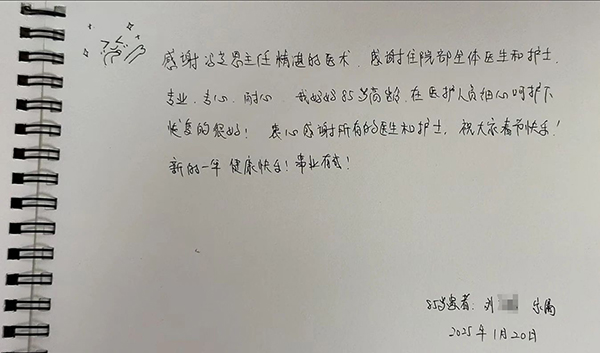 感谢冯艾思主任精湛的医术，感谢住院部全体医生和护士
专业、专心、耐心，我奶奶85岁高龄，在医护人员细心呵护下
恢复的很好！衷心感谢所有的医生和护士，祝大家春节快乐！
新的一年 健康快乐！事业有成！
85岁患者：刘 家属
2025年1月20日